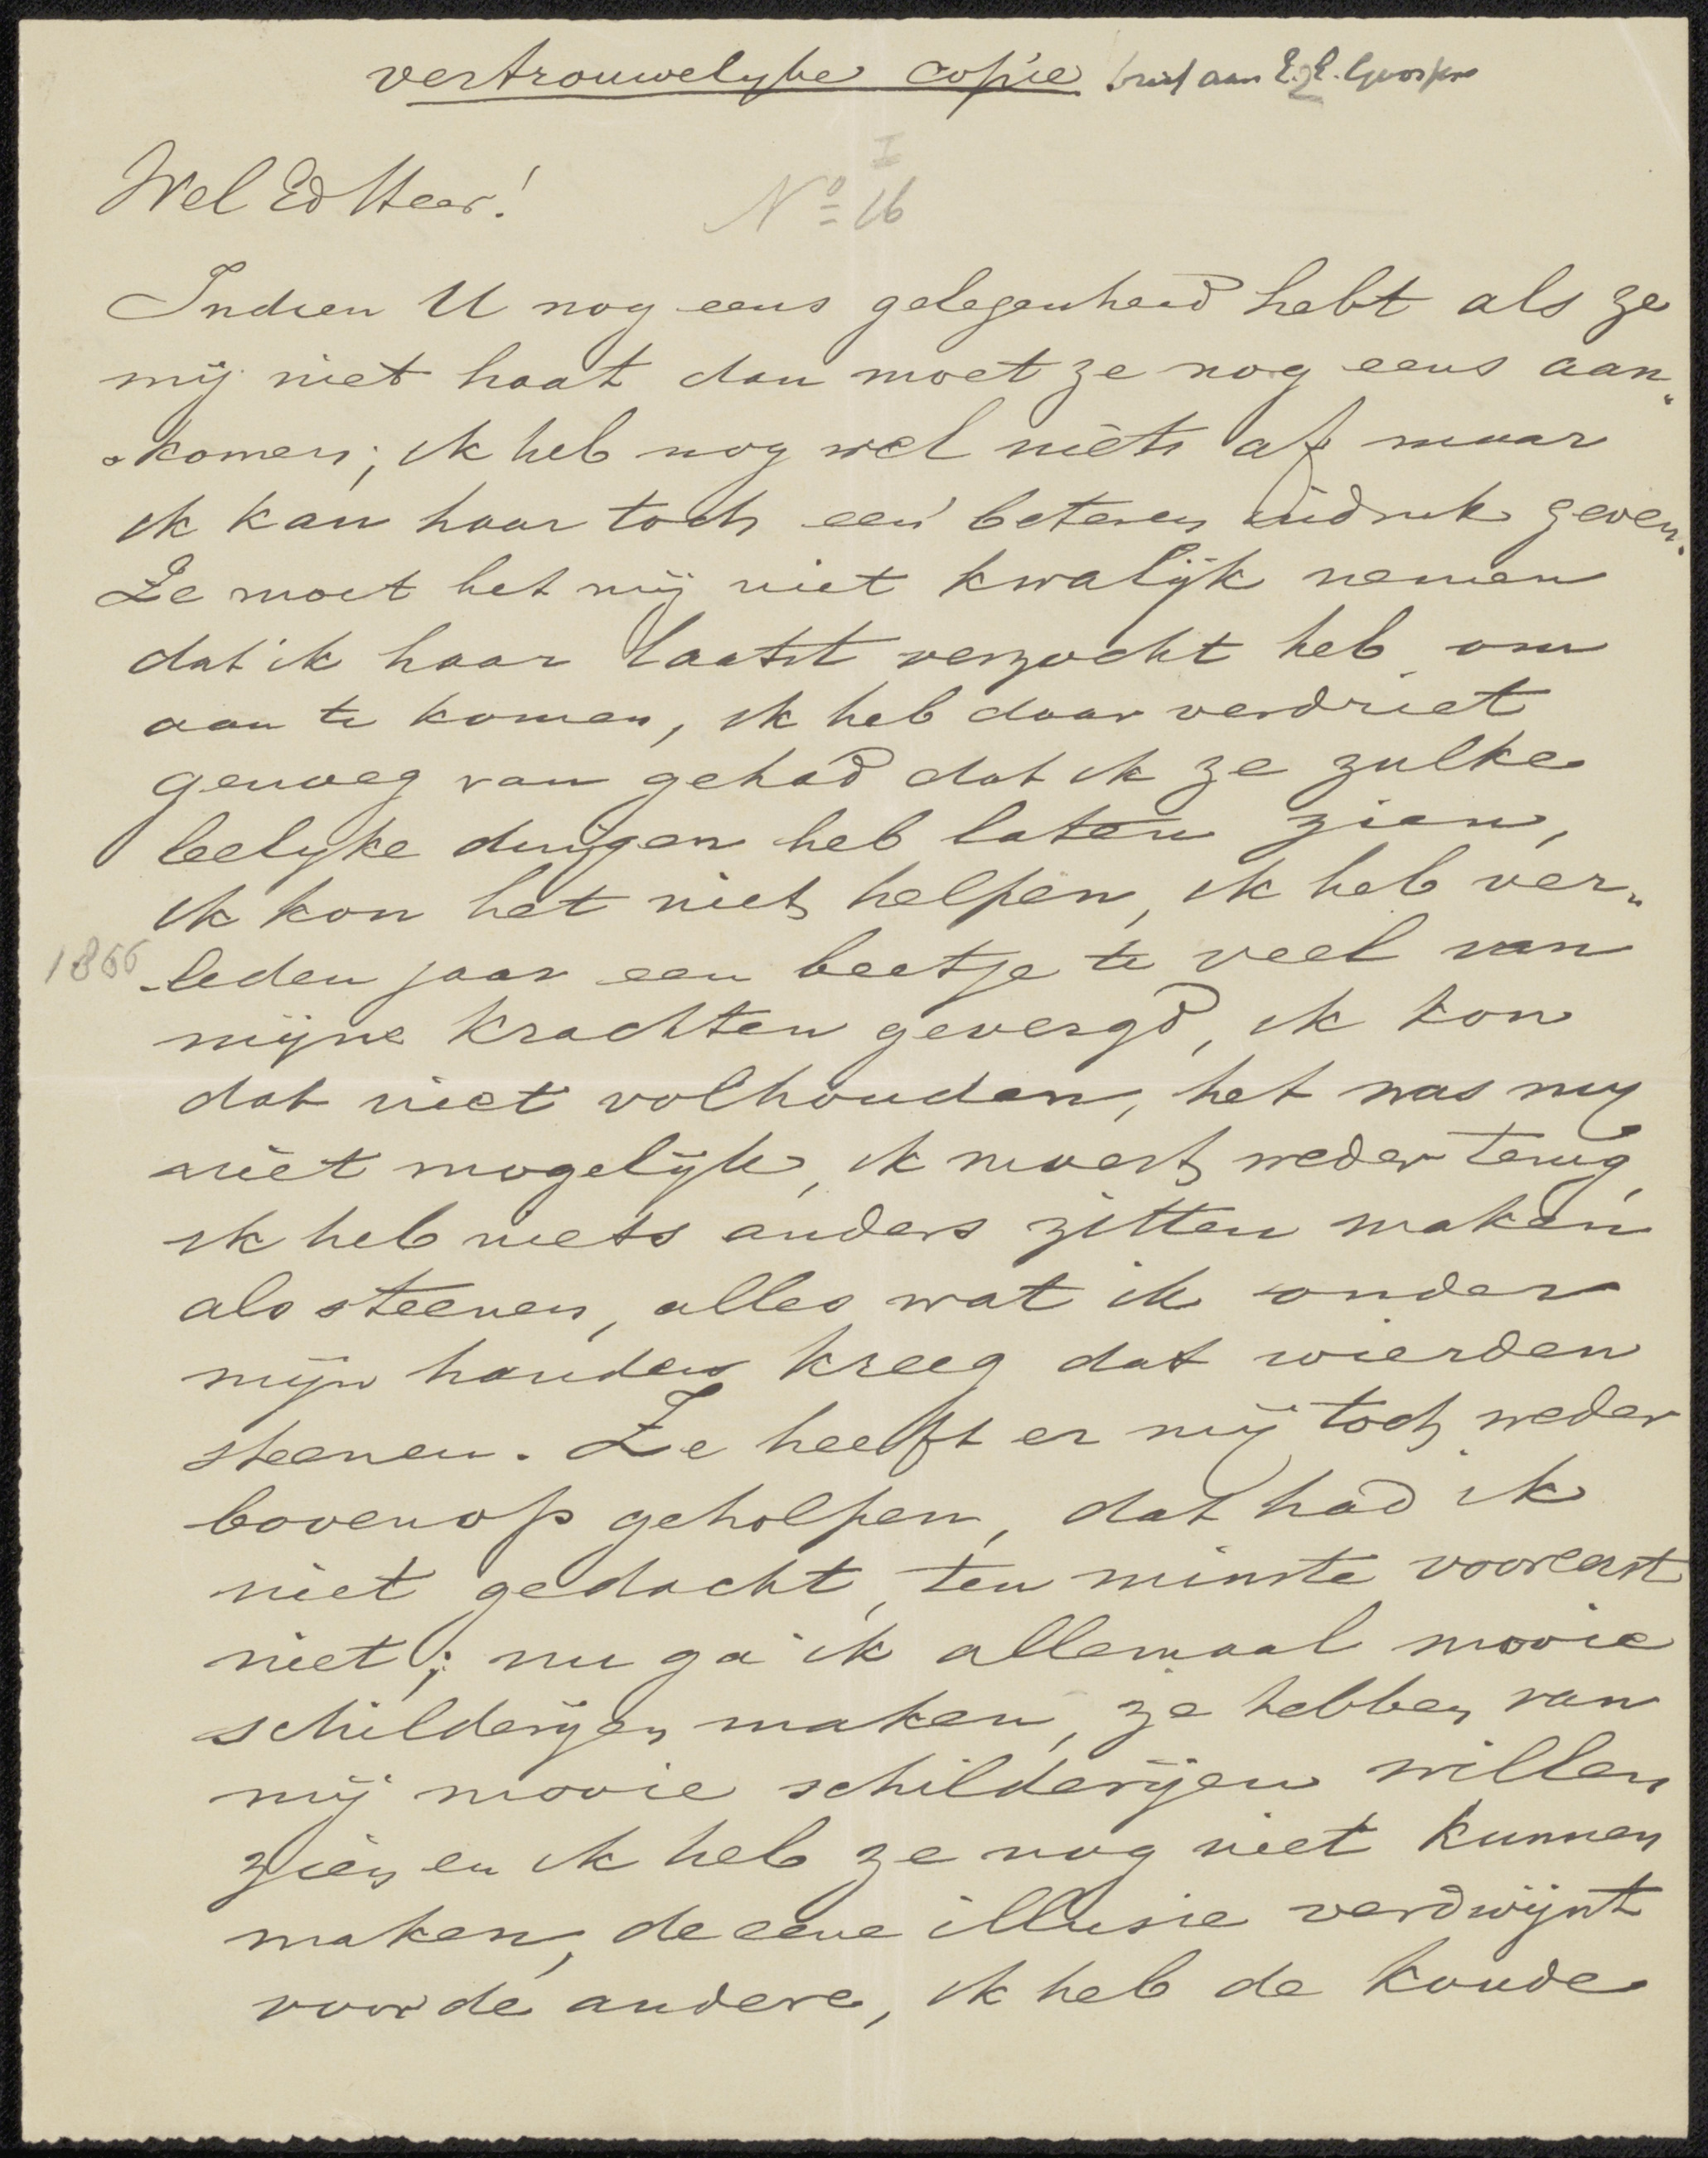 vertrouwelyke copie brief aan
I
Wel Ed Heer! No 16
Indien U nog eens gelegenheid hebt als ze
mij niet haat dan moet ze nog eens aan„
„komen; ik heb nog wel niets af maar
ik kan haar toch een beteren indruk geven.
Ze moet het mij niet kwalijk nemen
dat ik haar laatst verzocht heb om
aan te komen, ik heb daar verdriet
genoeg van gehad dat ik ze zulke
leelyke dingen heb laten zien,
ik kon het niet helpen, ik heb ver„
1866 „leden jaar een beetje te veel van
mijne krachten gevergd, ik kon
dat niet volhouden, het was my
niet mogelijk, ik moest weder terug,
ik heb niets anders zitten maken
als steenen, alles wat ik onder
mijn handen kreeg dat wierden
steenen. Ze heeft er mij toch weder
bovenop geholpen, dat had ik
niet gedacht, ten minste vooreerst
niet; nu ga ik allemaal mooie
schilderijen maken, ze hebben van
mij mooie schilderijen willen
zien en ik heb ze nog niet kunnen
maken, de eene illusie verdwijnt
voor de andere, ik heb de koude